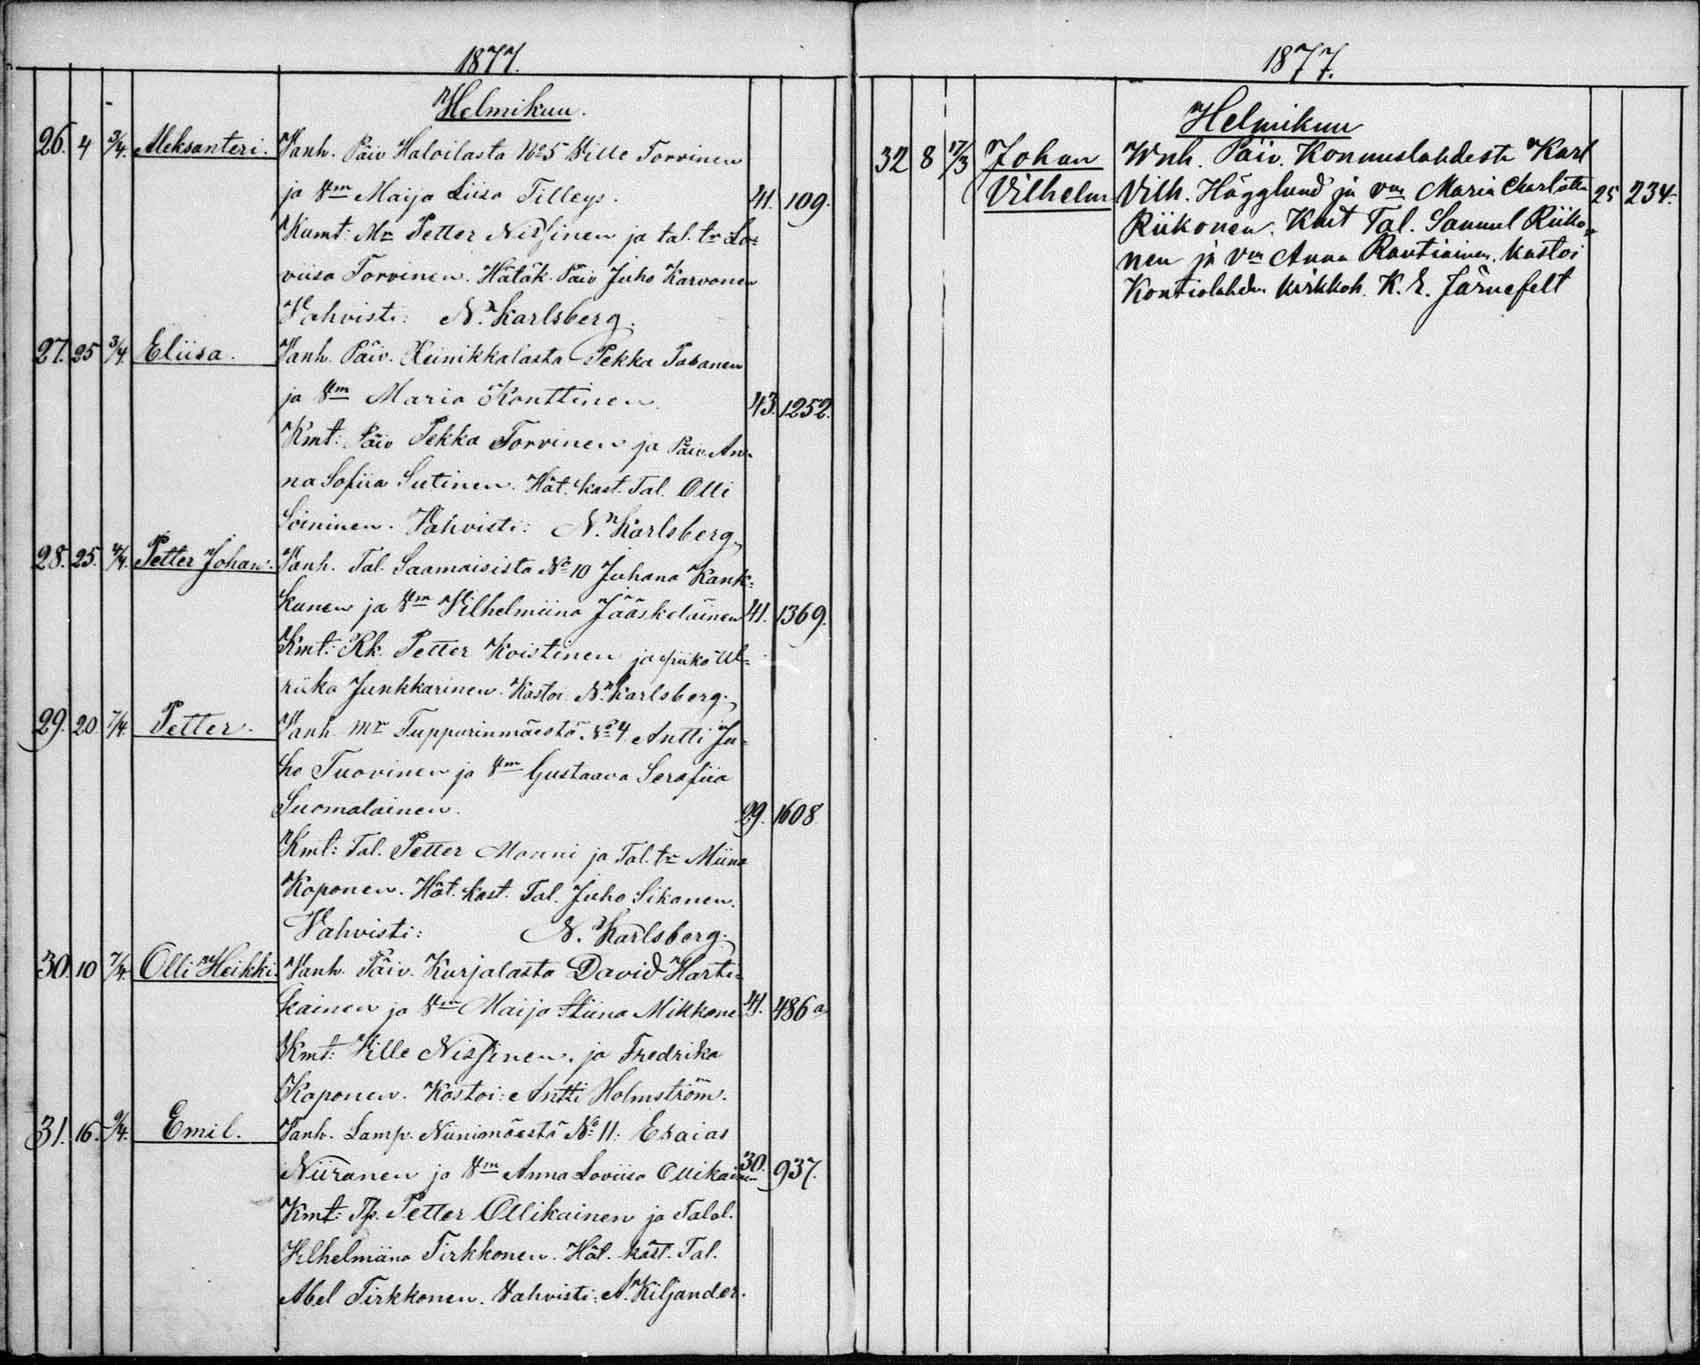 1877.
Helmikuu.
26. 4 3/4. Aleksanteri. Vanh. Päiv Haloilasta No 5 Ville Torvinen
ja Vm Maija Liisa Tilleys. 41. 109.
Kumt: Mr Petter Nissinen ja tal. tr Lo=
viisa Torvinen. Hätäk. Päiv Juho Karvonen
Vahvisti: N. Karlsberg.
27. 25 3/4. Eliisa. Vanh. Päiv. Heinikkalasta Pekka Tabanen
ja Vm Maria Konttinen. 43. 1252.
Kmt: Päiv Pekka Torvinen ja Päiv. An=
na Sofiia Sutinen. Hät. kast. Tal. Olli
Soininen. Vahvisti: N. Karlsberg.
28. 25. 4/4. Petter Johan. Vanh. Tal. Saamaisista No 10 Juhana Kank=
kunen ja Vm Vilhelmiina Jääskeläinen 41. 1369.
Kmt: Rk. Petter Koistinen ja piika Ul=
riika Junkkarinen. Kastoi N. Karlsberg.
29. 20. 7/4. Petter. Vanh. Mr Tuppurinmäestä No 4 Antti Ju=
ho Tuovinen ja Vm Gustaava Serafiia
Suomalainen. 29. 1608
Kmt: Tal. Petter Monni ja Tal. tr Miina
Koponen. Hät. kast. Tal. Juho Sikanen.
Vahvisti: N. Karlsberg.
30. 10 7/4. Olli Heikki. Vanh. Päiv. Kurjalasta David Harti=
kainen ja Vm Maija Stiina Mikkone 41. 486 a
Kmt: Ville Nissinen, ja Fredrika
Koponen. Kastoi: Antti Holmström.
31. 16. 9/4. Emil. Vanh. Lamp. Niinimäestä No 11: Esaias
Niiranen ja Vm Anna Loviisa Ollikainen 30. 937.
Kmt: Petter Ollikainen ja Talol.
Vilhelmiina Tirkkonen. Hät. kast. Tal.
Abel Tirkkonen. Vahvisti: A. Kiljander.
1877.
Helmikuu
32 8 17/3 Johan Wnh. Päiv. Konnuslahdesta Karl
Vilhelm Vilh. Hägglund ja vm Maria Charlotta 25 234.
Riikonen. Kmt Tal. Samuel Riiko=
nen ja Vm Anna Rautiainen. Kastoi
Kontiolahden kirkkoh. K. E. Järnefelt